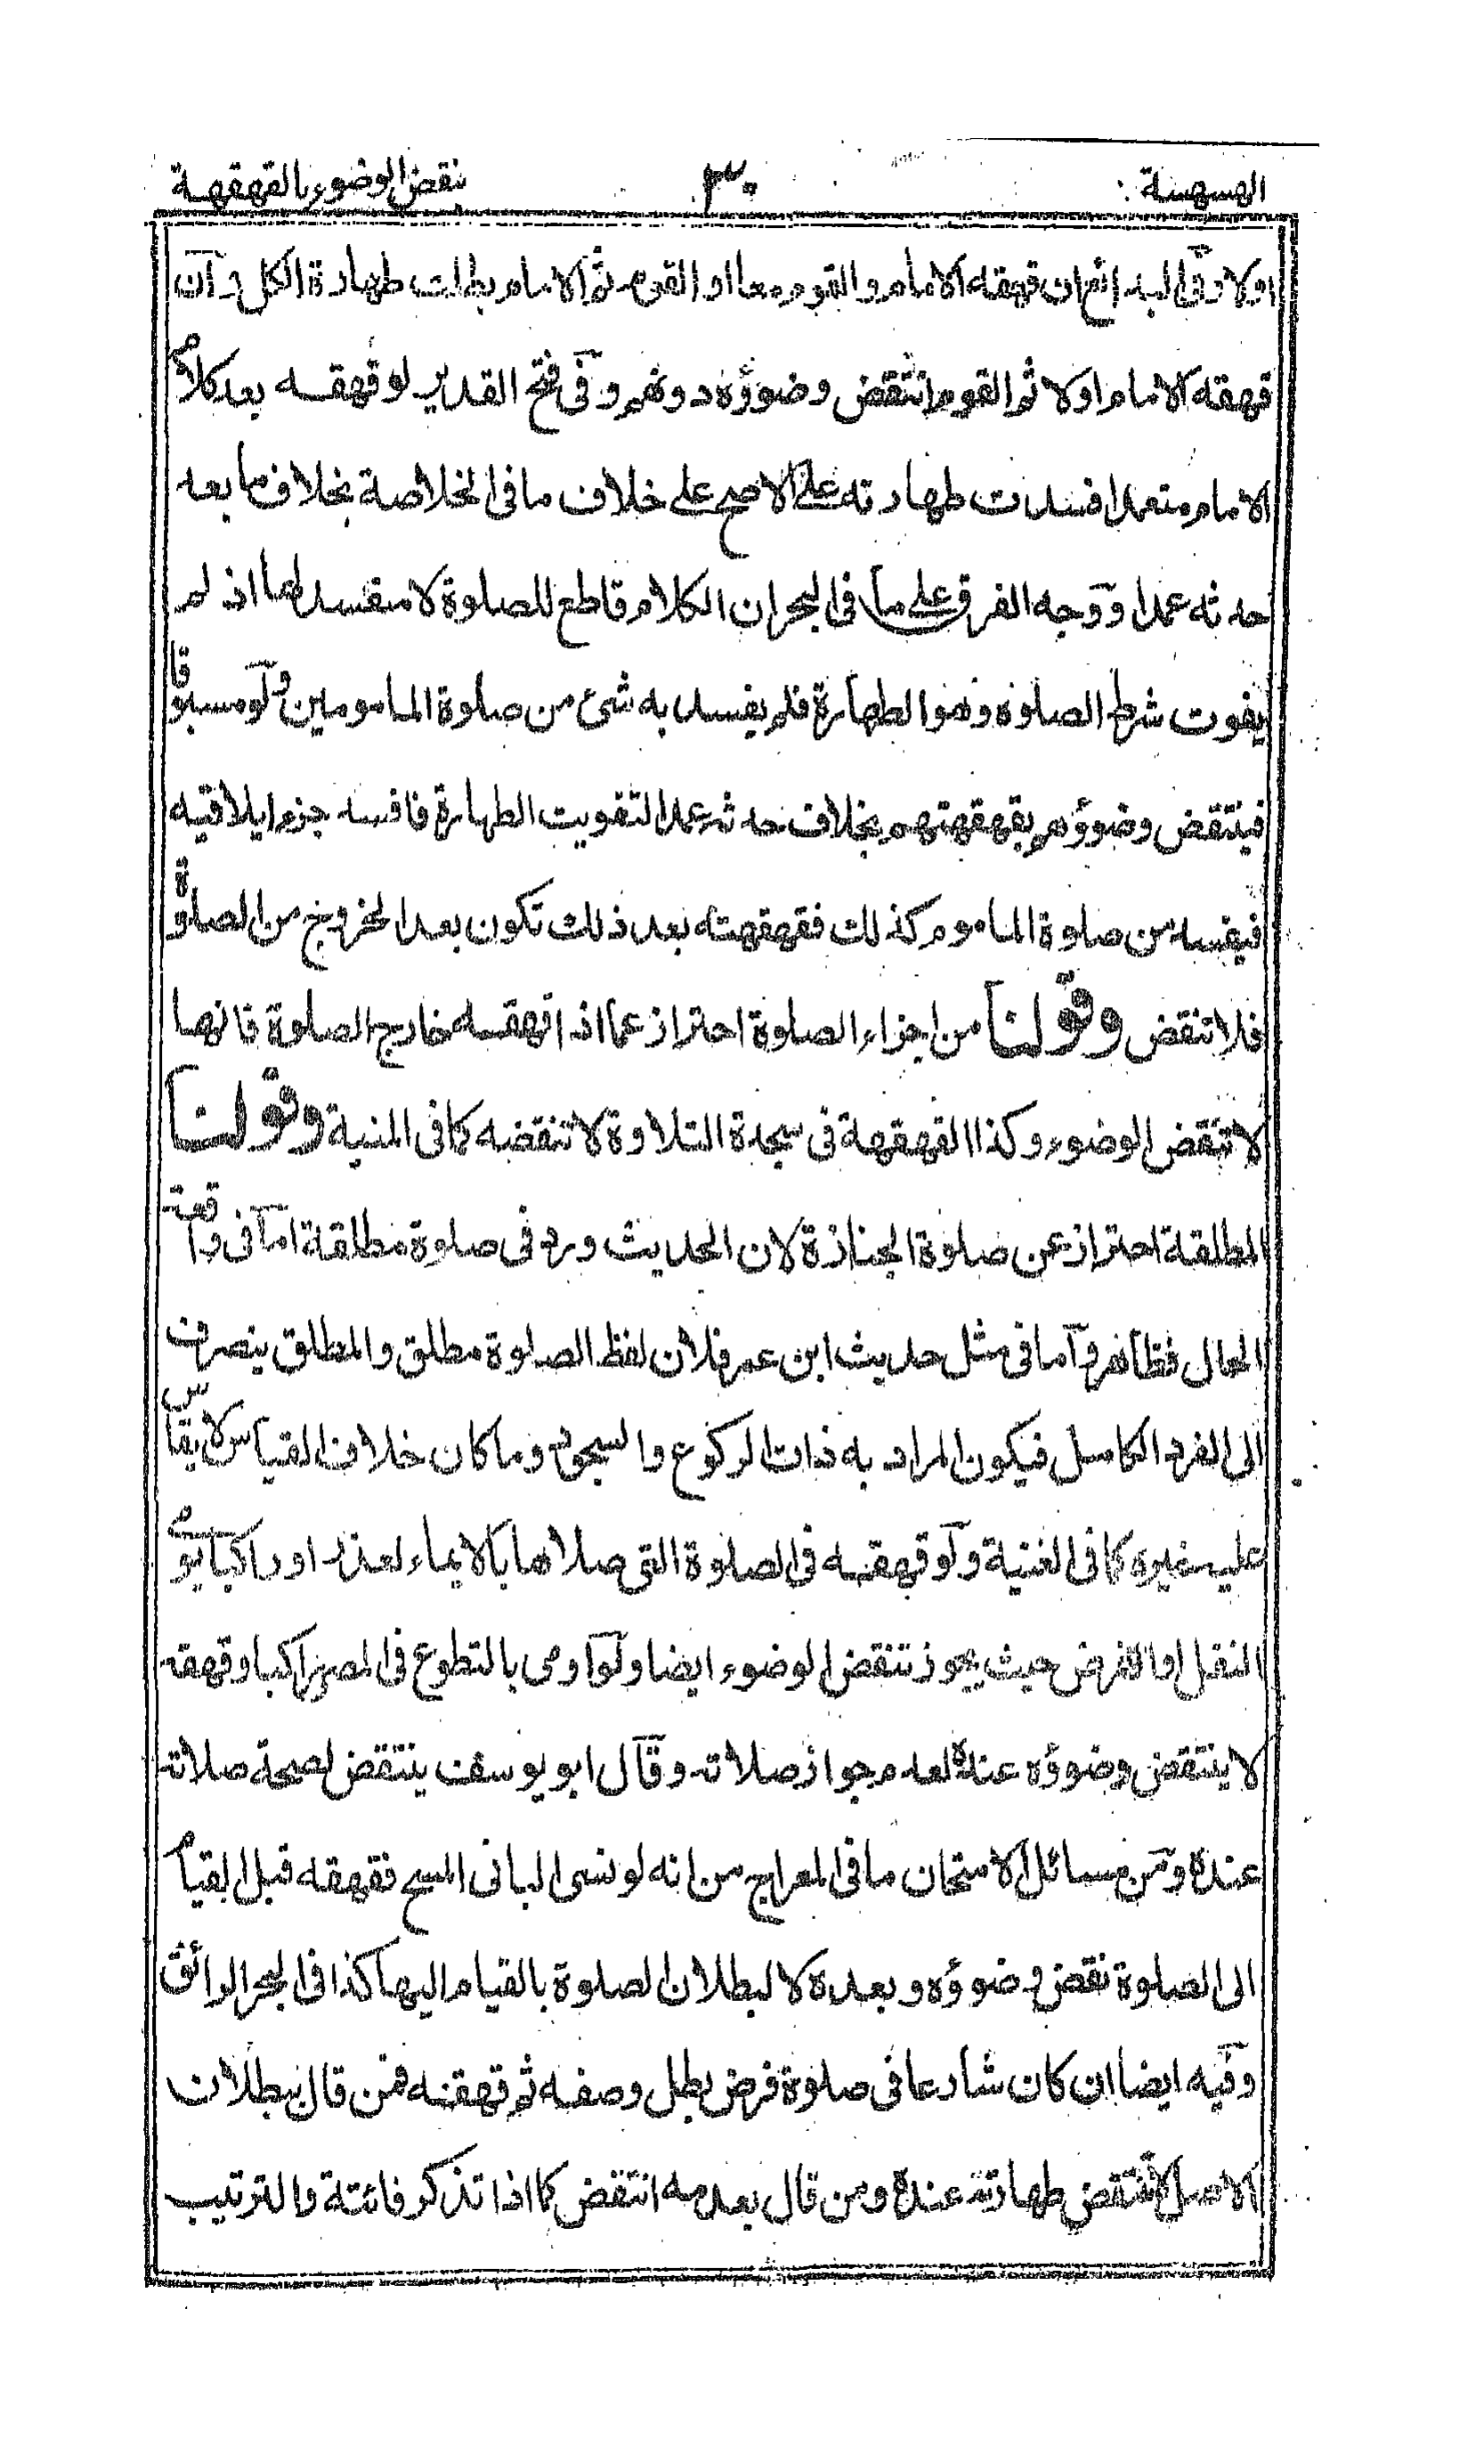 الهسهسة
٣٠
نقض الوضوء بالقهقهة
اولا وفى البدائع ان قهقه الامام والقوم معا او القوم ثم الامام بطلت طهارة الكل وان
قهقه الامام اولا ثم القوم انتقض وضوؤه دونهم وفى فتح القدير لو قهقه بعد كلام
الامام متعمدا فسدت طهارته على الاصح على خلاف ما فى الخلاصة بخلاف ما بعد
حدثه عمدا ووجه الفرق على ما فى البحر ان الكلام قاطع للصلوة لا مفسد لها اذ لم
يفوت شرط الصلوة وهو الطهارة فلم يفسد به شئ من صلوة المامومين ولو مسبوقا
فينتقض وضوؤهم بقهقهتهم بخلاف حدثه عمدا لتفويت الطهارة فافسد جزء ايلاقيه
فيفسد من صلوة الماموم كذلك فقهقهته بعد ذلك تكون بعد الخروج من الصلوة
فلا تنقض وقولنا من اجزاء الصلوة احتراز عما اذا قهقه خارج الصلوة فانها
لا تنقض الوضوء وكذا القهقهة فى سجدة التلاوة لا تنقضه كما فى المنية وقولنا
المطلقة احتراز عن صلوة الجنازة لان الحديث ورد فى صلوة مطلقة اما فى واقعة
الحال فظاهر واما فى مثل حديث ابن عمر فلان لفظ الصلوة مطلق والمطلق ينصرف
الى الفرد الكامل فيكون المراد به ذات الركوع والسجود وما كان خلاف القياس لا يقاس
عليه غيره كما فى الغنية ولو قهقه فى الصلوة التى صلاها بالايماء لعذر او راكبا يومى
النفل او الفرض حيث يجوز تنقض الوضوء ايضا ولو اومى بالتطوع فى المصر راكبا وقهقه
لا ينتقض وضوؤه عنده لعدم جواز صلاته وقال ابو يوسف ينتقض لصحة صلاته
عنده ومن مسائل الامتحان ما فى المعراج من انه لو نسى البانى المسح فقهقه قبل القيام
الى الصلوة نقض وضوؤه وبعده لا لبطلان الصلوة بالقيام اليها كذا فى البحر الرائق
وفيه ايضا ان كان شارعا فى صلوة فرض بطل وصفه ثم قهقه فمن قال ببطلان
الاصل لا تنتقض طهارته عنده ومن قال بعدمه انتقض كما اذا تذكر فائتة والترتيب